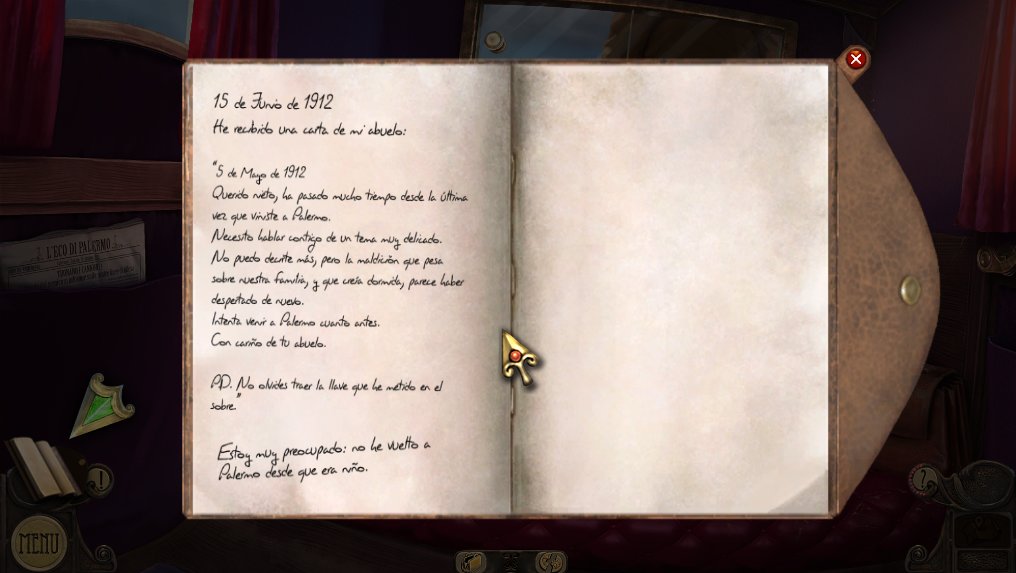 15 de Junio de 1912
He recibido una carta de mi abuelo:
"5 de Mayo de 1912
Querido nieto, ha pasado mucho tiempo desde la última
vez que viniste a Palermo.
Necesito hablar contigo de un tema muy delicado.
No puedo decirte más, pero la maldición que pesa
sobre nuestra familia, y que creía dormida, parece haber
despertado de nuevo.
Intenta venir a Palermo cuanto antes.
Con cariño de tu abuelo.
P.D. No olvides traer la llave que he metido en el
sobre."
Estoy muy preocupado: no he vuelto a
Palermo desde que era niño.
L'ECO DI PALERMO
MENU